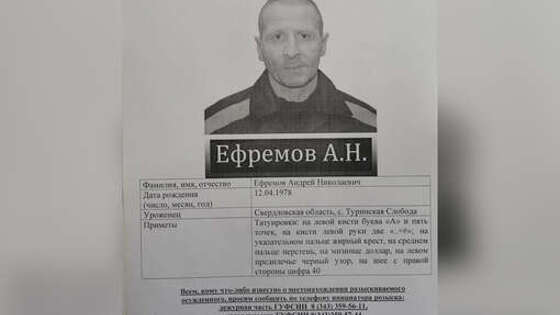 Ефремов А.Н.
Фамилия, имя, отчество Ефремов Андрей Николаевич
Дата рождения 12.04.1978
(число, месяц, год)
Уроженец Свердловская область, с. Туринская Слобода
Приметы Татуировки: на левой кисти буква «А» и пять
точек, на кисти левой руки две на
указательном пальце жирный крест, на среднем
пальце перстень, на мизинце доллар, на левом
предплечье черный узор, на шее с правой
стороны цифра 40
Всем, кому что-либо известно о местонахождении разыскиваемого
осужденного, просим сообщить по телефону инициатора розыска:
дежурная часть ГУФСИН 8 (343) 359-56-11,